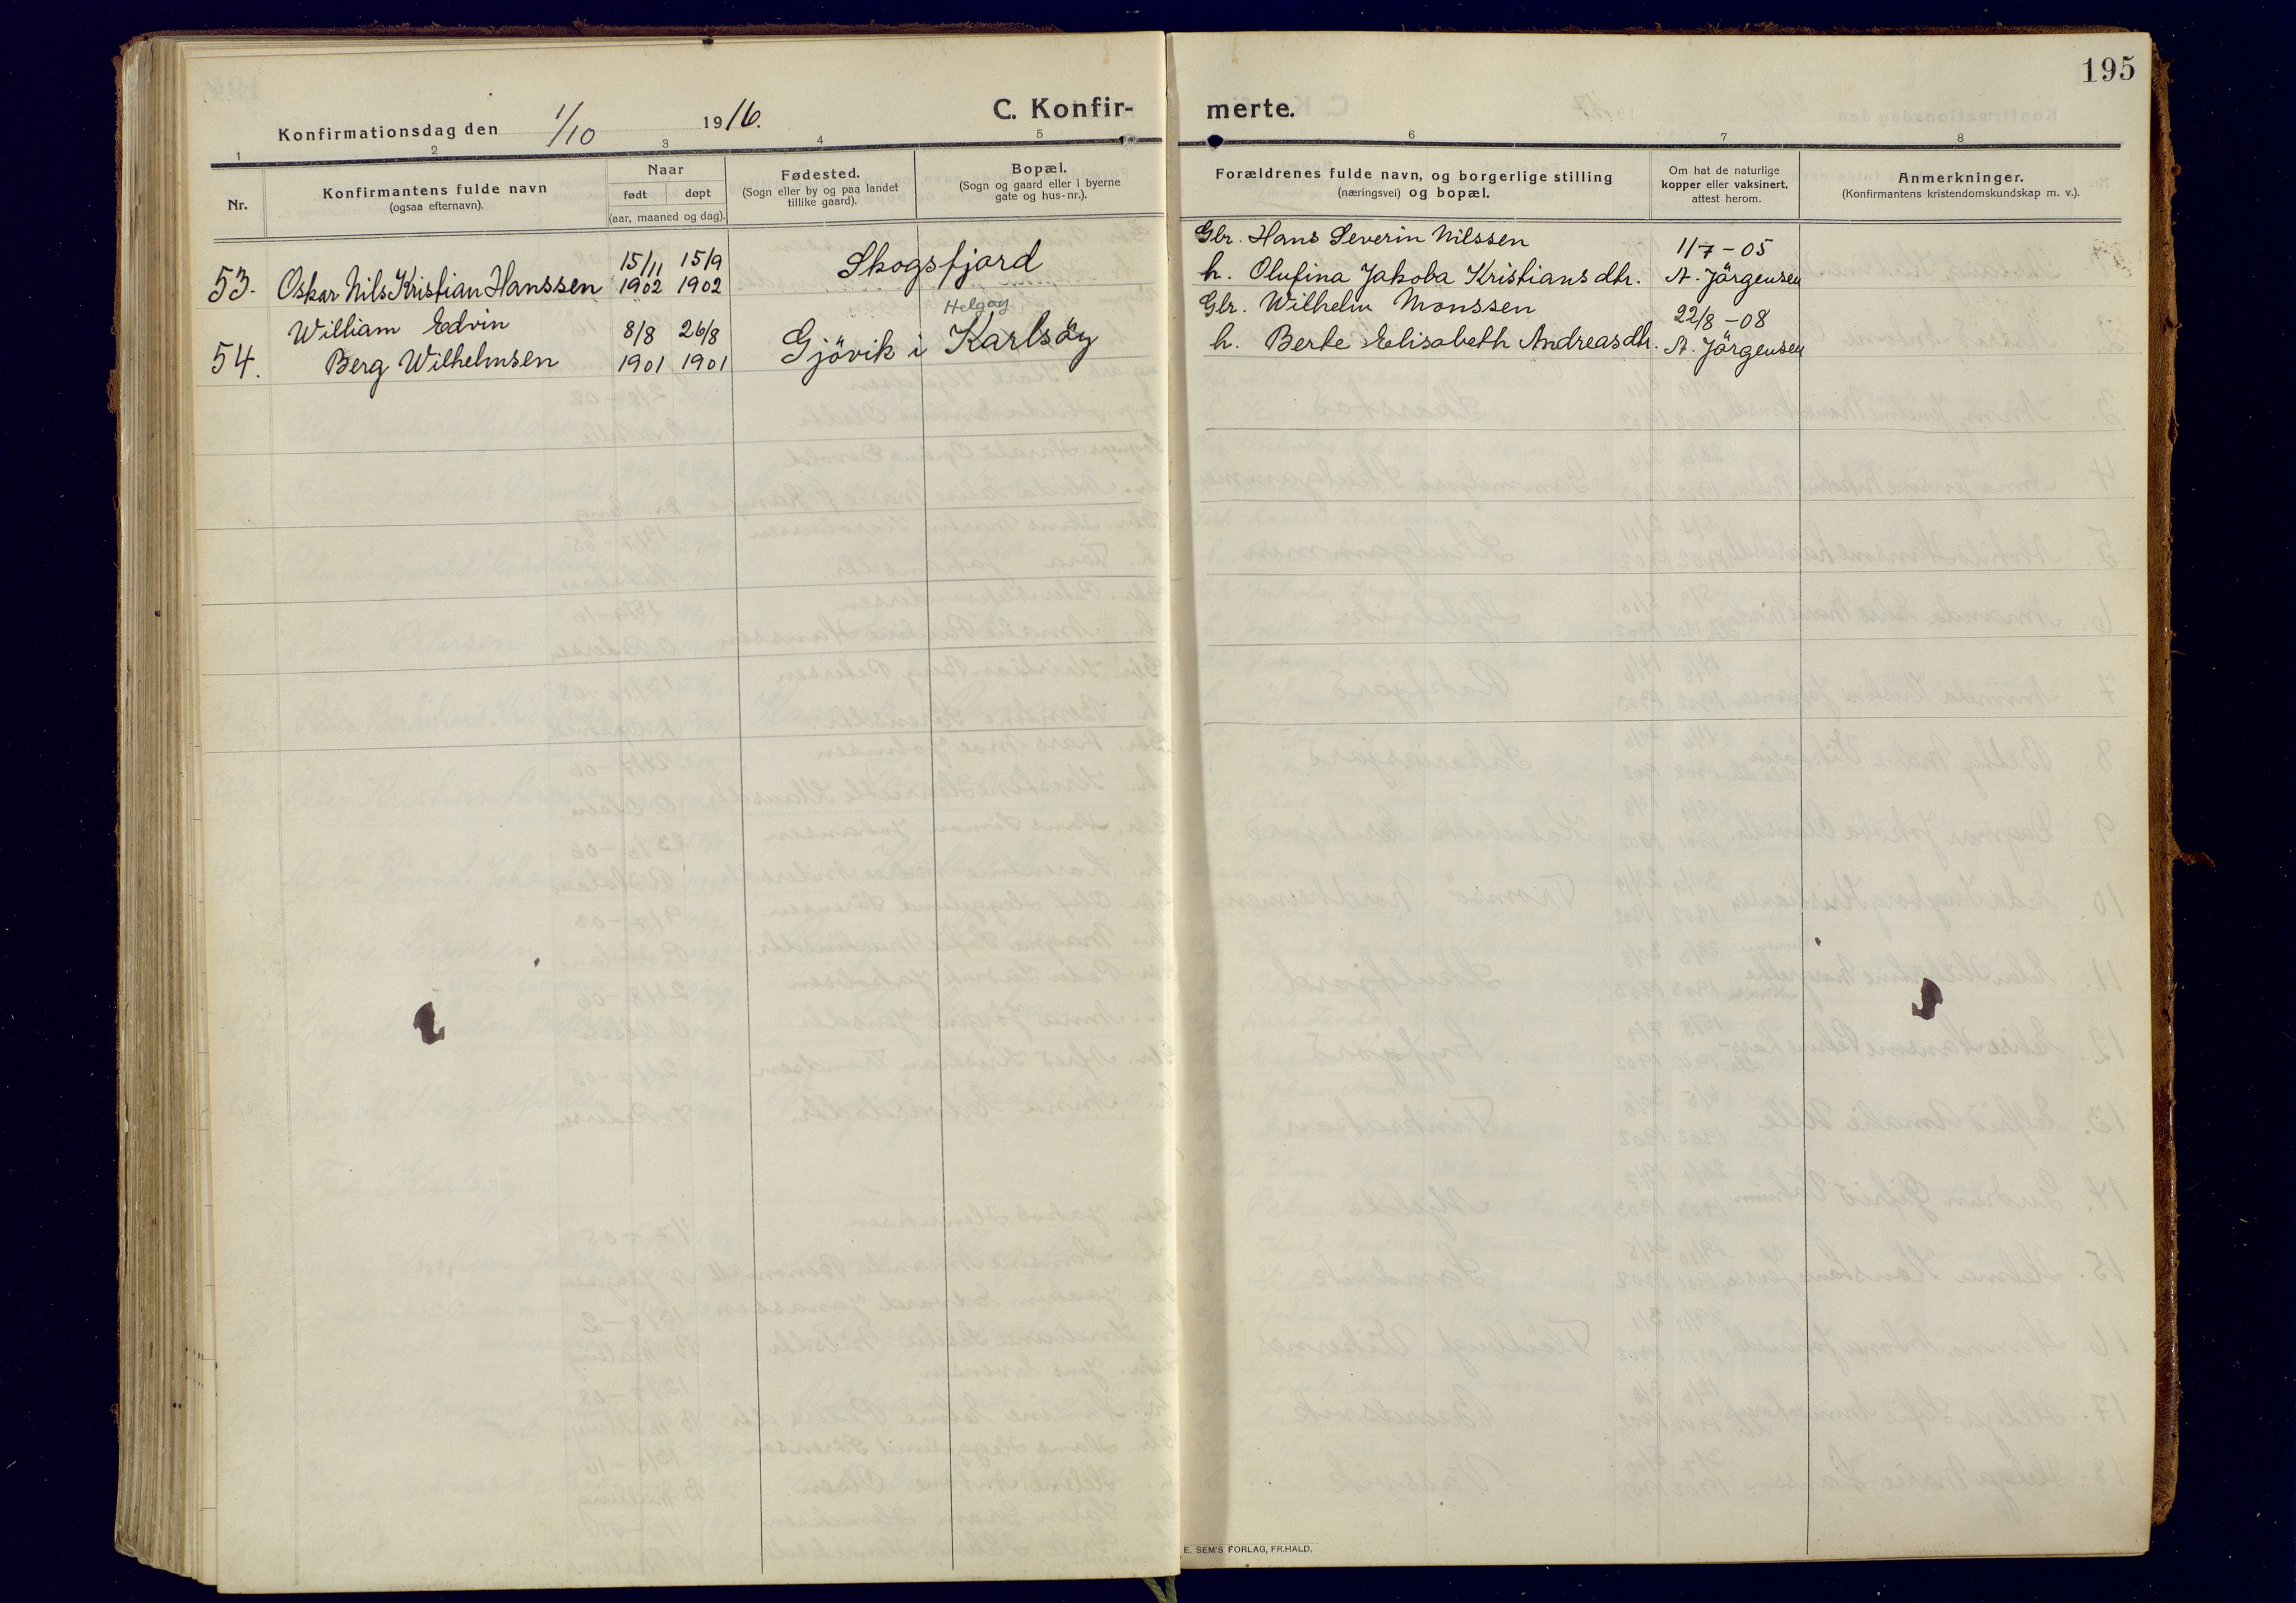 195
C. Konfir- merte.
Konfirmationsdag den 1/10 1916.
1 2 3 4 5 6 7 8
Nr.
Konfirmantens fulde navn
(ogsaa efternavn).
Naar
født døpt
(aar, maaned og dag).
Fødested.
(Sogn eller by og paa landet
tillike gaard).
Bopæl.
(Sogn og gaard eller i byerne
gate og hus-nr.).
Forældrenes fulde navn, og borgerlige stilling
(næringsvei) og bopæl.
Om hat de naturlige
kopper eller vaksinert,
attest herom.
Anmerkninger.
(Konfirmantens kristendomskundskap m. v.).
53. Oskar Nils Kristian Hanssen
15/11 15/9
1902 1902
Skogsfjord
Gbr. Hans Severin Nilssen
h. Olufina Jakoba Kristiansdtr.
1/7-05
A. Jörgensen
54. William Edvin
Berg Wilhelmsen
8/8 26/8
1901 1901
Helgøy
Gjövik i Karlsöy
Gbr. Wilhelm Monssen
h. Berte Elisabeth Andreasdtr.
22/8-08
A. Jörgensen
E. SEM'S FORLAG, FR.HALD.